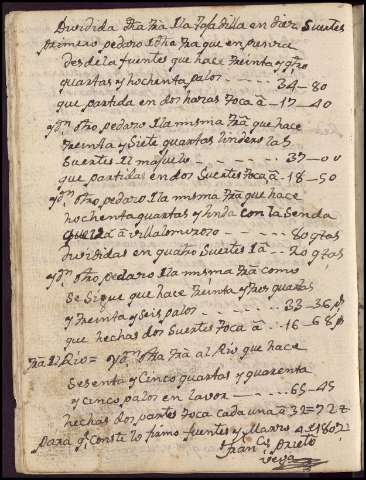 Dividida dha trâ Ila Tofadilla en diez Suertes
primero pedazo I dha tra que en penvia
desde la fuentes que hace treinta y qtro
quartas y hochenta palos - - - - - 34-80
que partida en dos hazas toca â - 17-40
yd otro pedazo Ila misma trâ que hace
treinta y Siete quartas linderolas
Suertes El majuelo - - - - - 37-00
que partidas en dos Suertes toca â - 18-50
yd otro pedazo Ila misma trâ que hace
hochenta quartas y linda con la Senda
que va â villalmurozo - - - - 80 qtas
dividida en quatro Suertes I â - - 20 qtas
yd otro pedazo Ila misma trâ como
se Sigue que hace treinta y tres quartas
y treinta y seis palos - - - 33-36 ps
que hechas dos Suertes toca â - - 16-68 ps
trâ El Rio = yd otra trâ al Rio que hace
Sesenta y Cinco quartas y quarenta
y cinco palos en lavor - - - 65-45
hechas dos partes toca cada una â 32=72 2
para q conste lo firmo fuentes y Marzo 4 I 1807
Fran co Prieto
vega